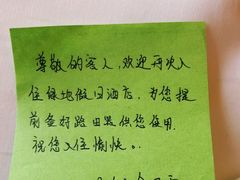 尊敬的客人,欢迎再次入
住绿地假日酒店,为您提
前备好路由器供您使用.
祝您入住愉快。.